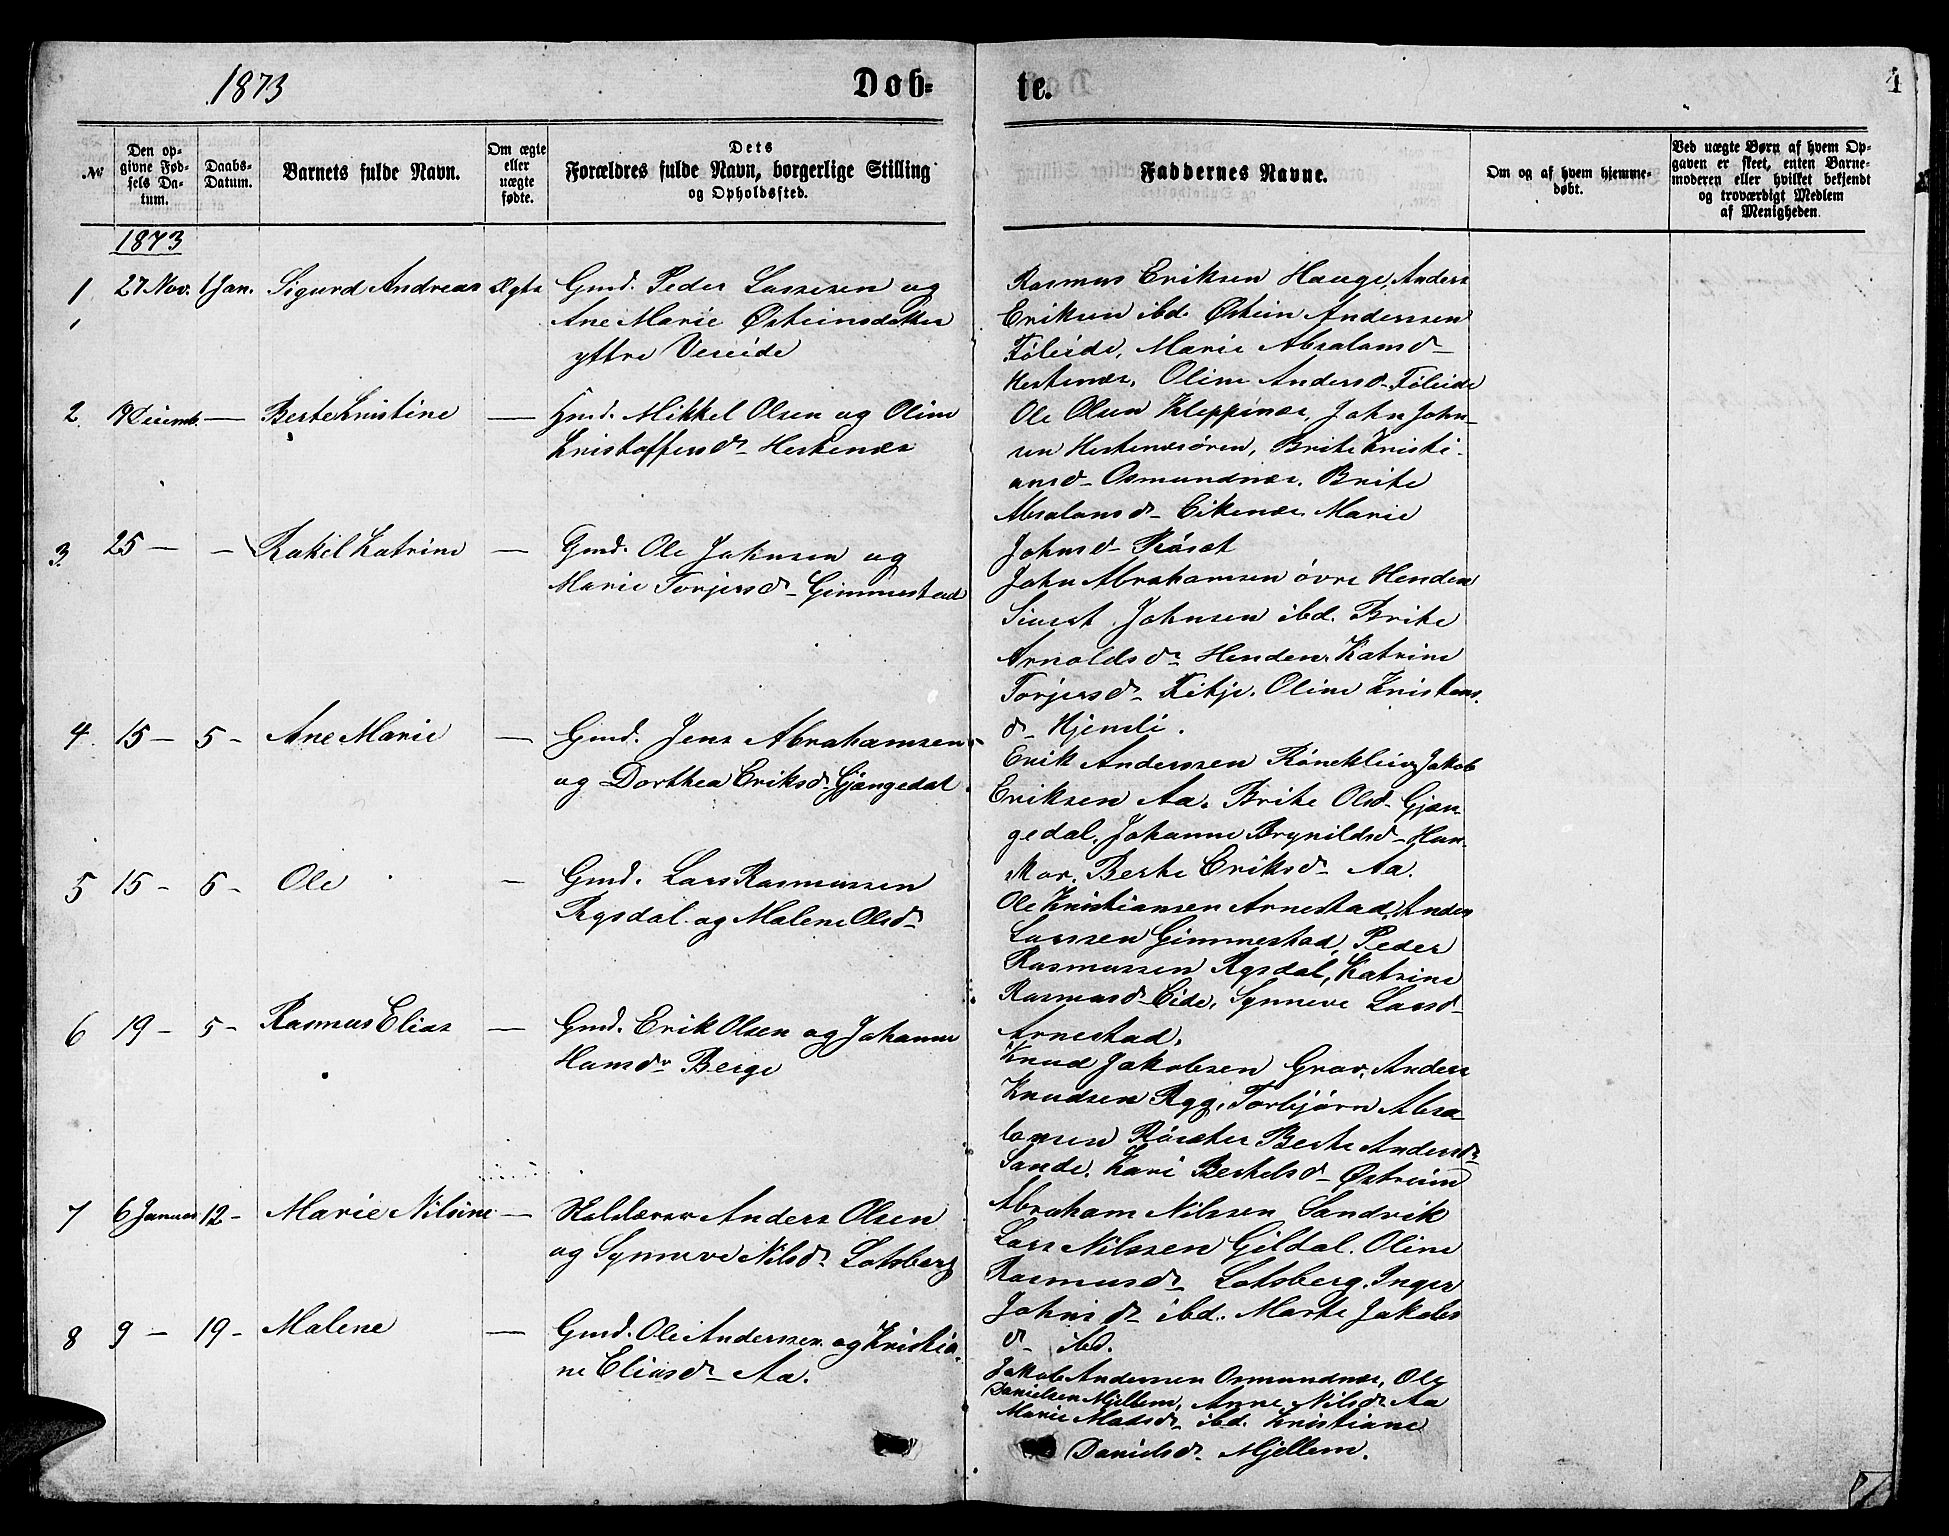 1873
Døb-
te.
4
№
Den op-
givne Fød-
sels Da-
tum.
Daabs-
Datum.
Barnets fulde Navn.
Om ægte
eller
uægte
fødte.
Dets
Forældres fulde Navn, borgerlige Stilling
og Opholdssted.
Faddernes Navne.
Om og af hvem hjemme-
døbt.
Ved uægte Børn af hvem Op-
gaven er skeet, enten Barne-
moderen eller hvilket bekjendt
og troværdigt Medlem
af Menigheden.
1873
1 27 Nov. 1 Jan. Sigurd Andreas Ægte
Gmd. Peder Lassesen og
Ane Marie Østeinsdatter
yttre Vereide
Rasmus Eriksen Hauge, Anders
Eriksen ibd. Østein Anderssen
Føleide, Marie Absalonsd-
Hestenæs, Oline Andersd- Føleide
2. 19 Decemb. — Berte Kristine —
Gmd. Mikkel Olsen og Oline
Kristoffersd- Hestenæs
Ole Olsen Kleppenæs, John John-
sen Hestenesøren, Brite Kristi-
ansd- Osmundnæs. Brite
Absalonsd- Eikenæs Marie
Johnsd- Røset
3. 25 — — Rakel Katrine —
Gmd. Ole Johnsen og
Marie Torjersd- Gimmestad
John Abrahamsen øvre Henden
Johnsen ibd. Brite
Arnoldsd- Henden. Katrine
Torjersd- Oline Kristens
d- Hjemli.
4. 15 — 5 - Ane Marie —
Gmd. Jens Abrahamsen
og Dorthea Eriksd- Gjengedal.
Erik Anderssen Røneklieiv, Jakob
Eriksen Aa. Brite Olsd- Gjen-
gedal, Johanne Brynildsd- Han-
Berte Eriksd- Aa.
5 15 - 6 - Ole —
Gmd. Lars Rasmussen
Rysdal. og Malene Olsd-
Ole Kristiansen Arnestad, Anders
Larssen Gimmestad, Peder
Rasmussen Rysdal, Katrine
Rasmusd- Eide, Synneve Larsd-
Arnestad.
6 19 - 5 - Rasmus Elias —
Gmd. Erik Olsen og Johanne
Hansd- Berge
Knud Jakobsen Grov, Anders
Knudsen Rygg, Torbjørn Absa-
lonsen Røset Berte Andersd-
Sande. Kari Bertelsd- Østreim
7 6 Januar 12 - Marie Nilsine —
Anders Olsen
og Synneve Nilsd- Lotsberg
Abraham Nilssen Sandvik
Lars Nilssen Gildal. Oline
Rasmusd- Lotsberg. Inger
Johnsd- ibd. Marte Jakobs
d- ibd.
8 9 — 19 - Malene —
Gmd. Ole Anderssen og Kristia-
ne Eliasd- Aa.
Jakob Anderssen Osmundnæs, Ole
Danielsen Mjellem, Anne Nilsd- Aa
Marie Madsd- ibd. Kristiane
Danielsd- Mjellem.